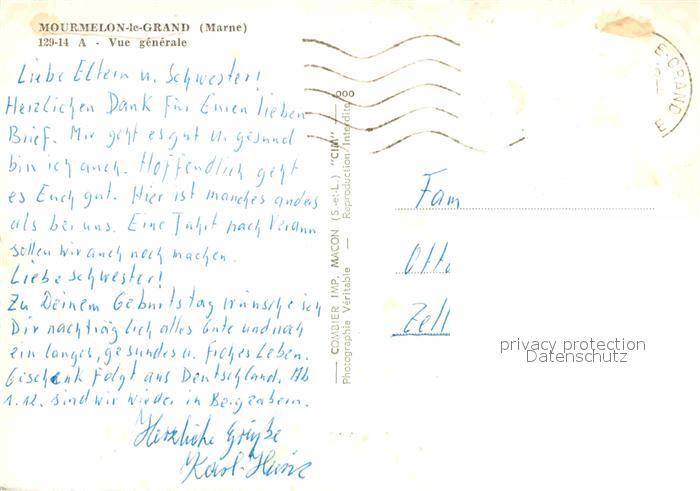 MOURMELON-le-GRAND (Marne)
129-14 A - Vue générale
Liebe Eltern u. Schwester!
Herzlichen Dank für Euren lieben
Brief. Mir geht es gut u. gesund
bin ich auch. Hoffendlich geht
es Euch gut. Hier ist manches anders
als bei uns. Eine Fahrt nach Verdun
sollen wir auch noch machen.
Liebe Schwester!
Zu Deinem Geburtstag wünsche ich
Dir nachträglich alles Gute und noch
ein langes, gesundes u. frohes Leben.
Geschenk folgt aus Deutschland. Ab
1.12. sind wir wieder in Bergzabern.
Herzliche Grüße
Karl-Heinz
COMBIER IMP. MACON (S.-et-L.) "CIM"
Photographie Véritable — Reproduction Interdite
E-GRAND
Fam
Otto
Zell
privacy protection
Datenschutz